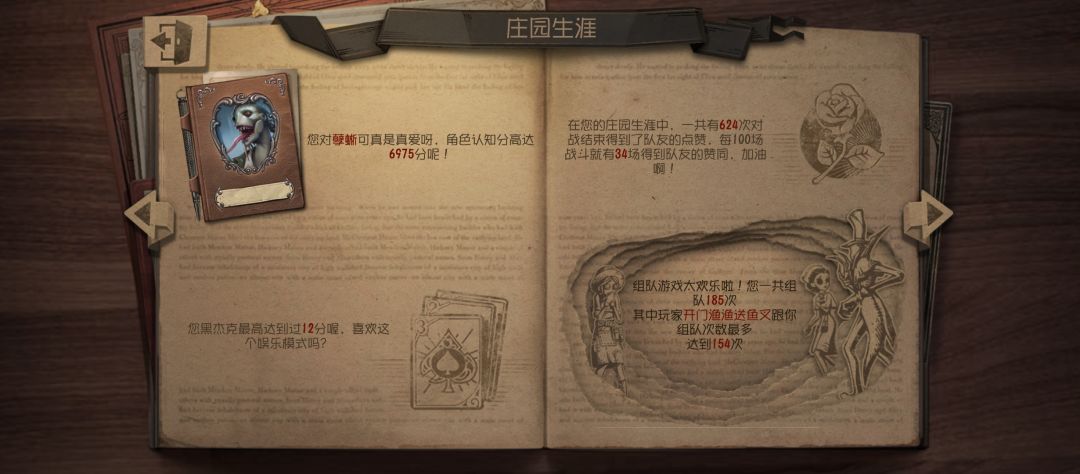 庄园生涯
您对孽蜥可真是真爱呀，角色认知分高达
6975分呢！
您黑杰克最高达到过12分喔，喜欢这
个娱乐模式吗？
在您的庄园生涯中，一共有624次对
战结束得到了队友的点赞，每100场
战斗就有34场得到队友的赞同，加油
啊！
组队游戏大欢乐啦！您一共组
队185次
其中玩家开门渔渔送鱼叉跟你
组队次数最多
达到154次